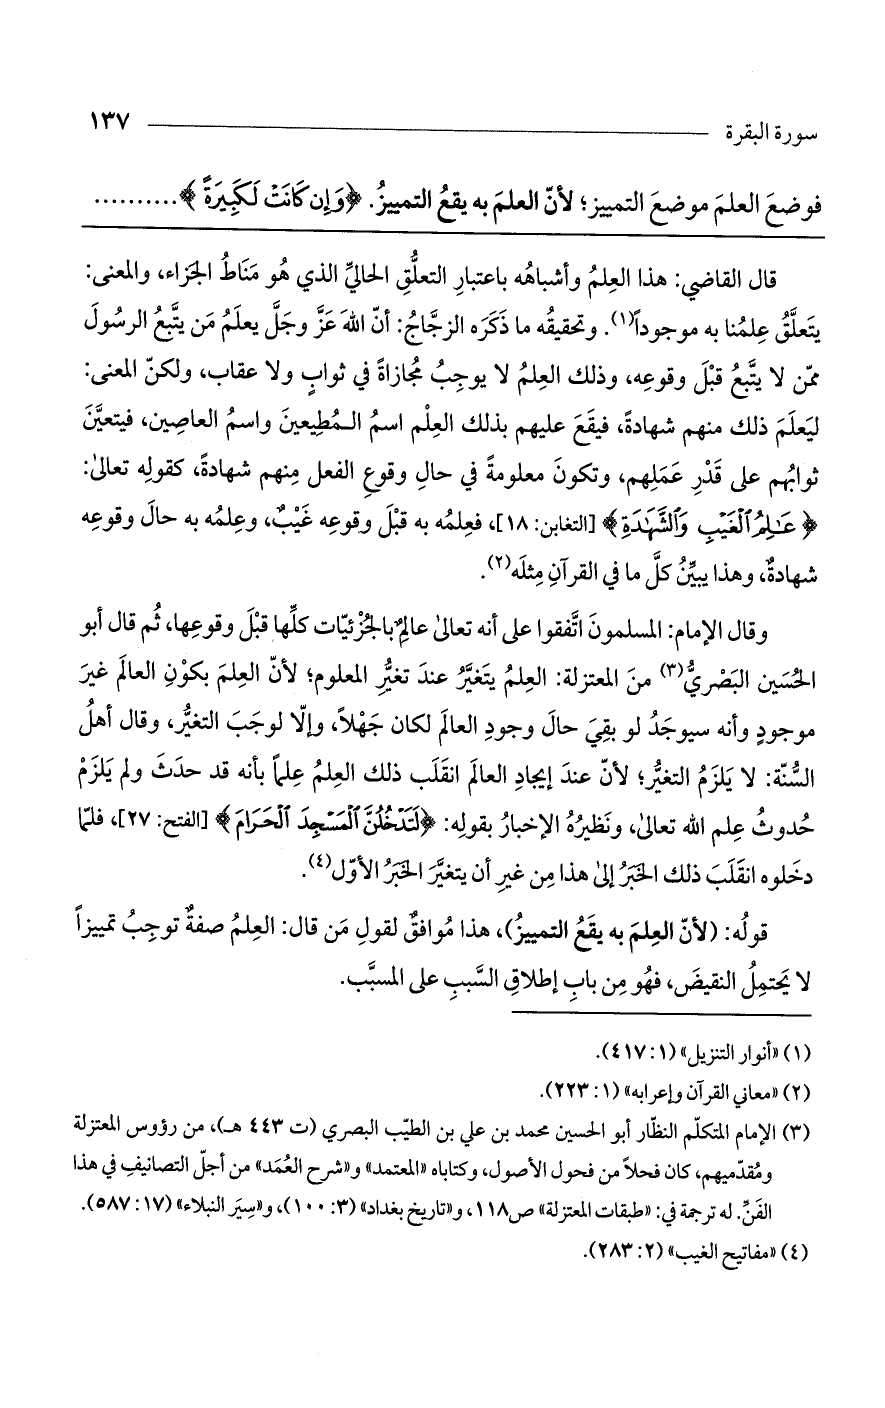 سورة البقرة ١٣٧
فوضعَ العلمَ موضعَ التمييز؛ لأنّ العلمَ به يقعُ التمييزُ. ﴿وَإِن كَانَتْ لَكَبِيرَةً﴾..........
قال القاضي: هذا العِلمُ وأشباهُه باعتبارِ التعلُّقِ الحاليِّ الذي هُو مَنَاطُ الجَزاء، والمعنى:
يتَعلَّقُ عِلمُنا به موجوداً(١). وتحقيقُه ما ذَكَرَه الزجَّاجُ: أنّ اللهَ عَزَّ وجَلَّ يعلَمُ مَن يتَّبعُ الرسُولَ
ممّن لا يتَّبعُ قبْلَ وقوعِه، وذلك العِلمُ لا يوجِبُ مُجازاةً في ثوابٍ ولا عقاب، ولكنّ المعنى:
ليَعلَمَ ذلك منهم شهادةً، فيقَعَ عليهم بذلك العِلْم اسمُ الـمُطِيعينَ واسمُ العاصِين، فيتعيَّنَ
ثوابُهم على قَدْرِ عَمَلِهم، وتكونَ معلومةً في حالِ وقوعِ الفعل مِنهم شهادةً، كقولِه تعالىٰ:
﴿عَـٰلِمُ ٱلْغَيْبِ وَٱلشَّهَـٰدَةِ﴾ [التغابن: ١٨]، فعِلمُه به قبْلَ وقوعِه غَيْبٌ، وعِلمُه به حالَ وقوعِه
شهادةٌ، وهذا يبيِّنُ كلَّ ما في القرآنِ مِثلَه(٢).
وقال الإمام: المسلمونَ اتَّفقوا على أنه تعالىٰ عالِمٌ بالجُزْئيّات كلِّها قبْلَ وقوعِها، ثُم قال أبو
الحُسَين البَصْريُّ(٣) منَ المعتزلة: العِلمُ يتَغيَّرُ عندَ تغيُّرِ المعلوم؛ لأنّ العِلمَ بكوْنِ العالَم غيرَ
موجودٍ وأنه سيوجَدُ لو بقِيَ حالَ وجودِ العالَم لكان جَهْلاً، وإلّا لوجَبَ التغيُّر، وقال أهلُ
السُّنّة: لا يَلزَمُ التغيُّر؛ لأنّ عندَ إيجادِ العالَم انقَلَب ذلك العِلمُ عِلماً بأنه قد حدَثَ ولم يَلزَمْ
حُدوثُ عِلم الله تعالىٰ، ونَظيرُهُ الإخبارُ بقولِه: ﴿لَتَدْخُلُنَّ ٱلْمَسْجِدَ ٱلْحَرَامَ﴾ [الفتح: ٢٧]، فلمّا
دخَلوه انقَلَبَ ذلك الخبَرُ إلىٰ هذا مِن غيرِ أن يتغيَّرَ الخبَرُ الأوّل(٤).
قولُه: (لأنّ العِلمَ به يقَعُ التمييزُ)، هذا مُوافقٌ لقولِ مَن قال: العِلمُ صفةٌ توجِبُ تمييزاً
لا يَحتمِلُ النقيضَ، فهُو مِن بابِ إطلاقِ السَّببِ على المسبَّب.
(١) «أنوار التنزيل» (١: ٤١٧).
(٢) «معاني القرآن وإعرابه» (١: ٢٢٣).
(٣) الإمام المتكلّم النظّار أبو الحسين محمد بن علي بن الطيّب البصري (ت ٤٤٣ هـ)، من رؤوس المعتزلة
ومُقدّميهم، كان فحلاً من فحول الأصول، وكتاباه «المعتمد» و«شرح العُمَد» من أجلّ التصانيفِ في هذا
الفَنِّ. له ترجمة في: «طبقات المعتزلة» ص١١٨، و«تاريخ بغداد» (٣: ١٠٠)، و«سِيَر النبلاء» (١٧: ٥٨٧).
(٤) «مفاتيح الغيب» (٢: ٢٨٣).